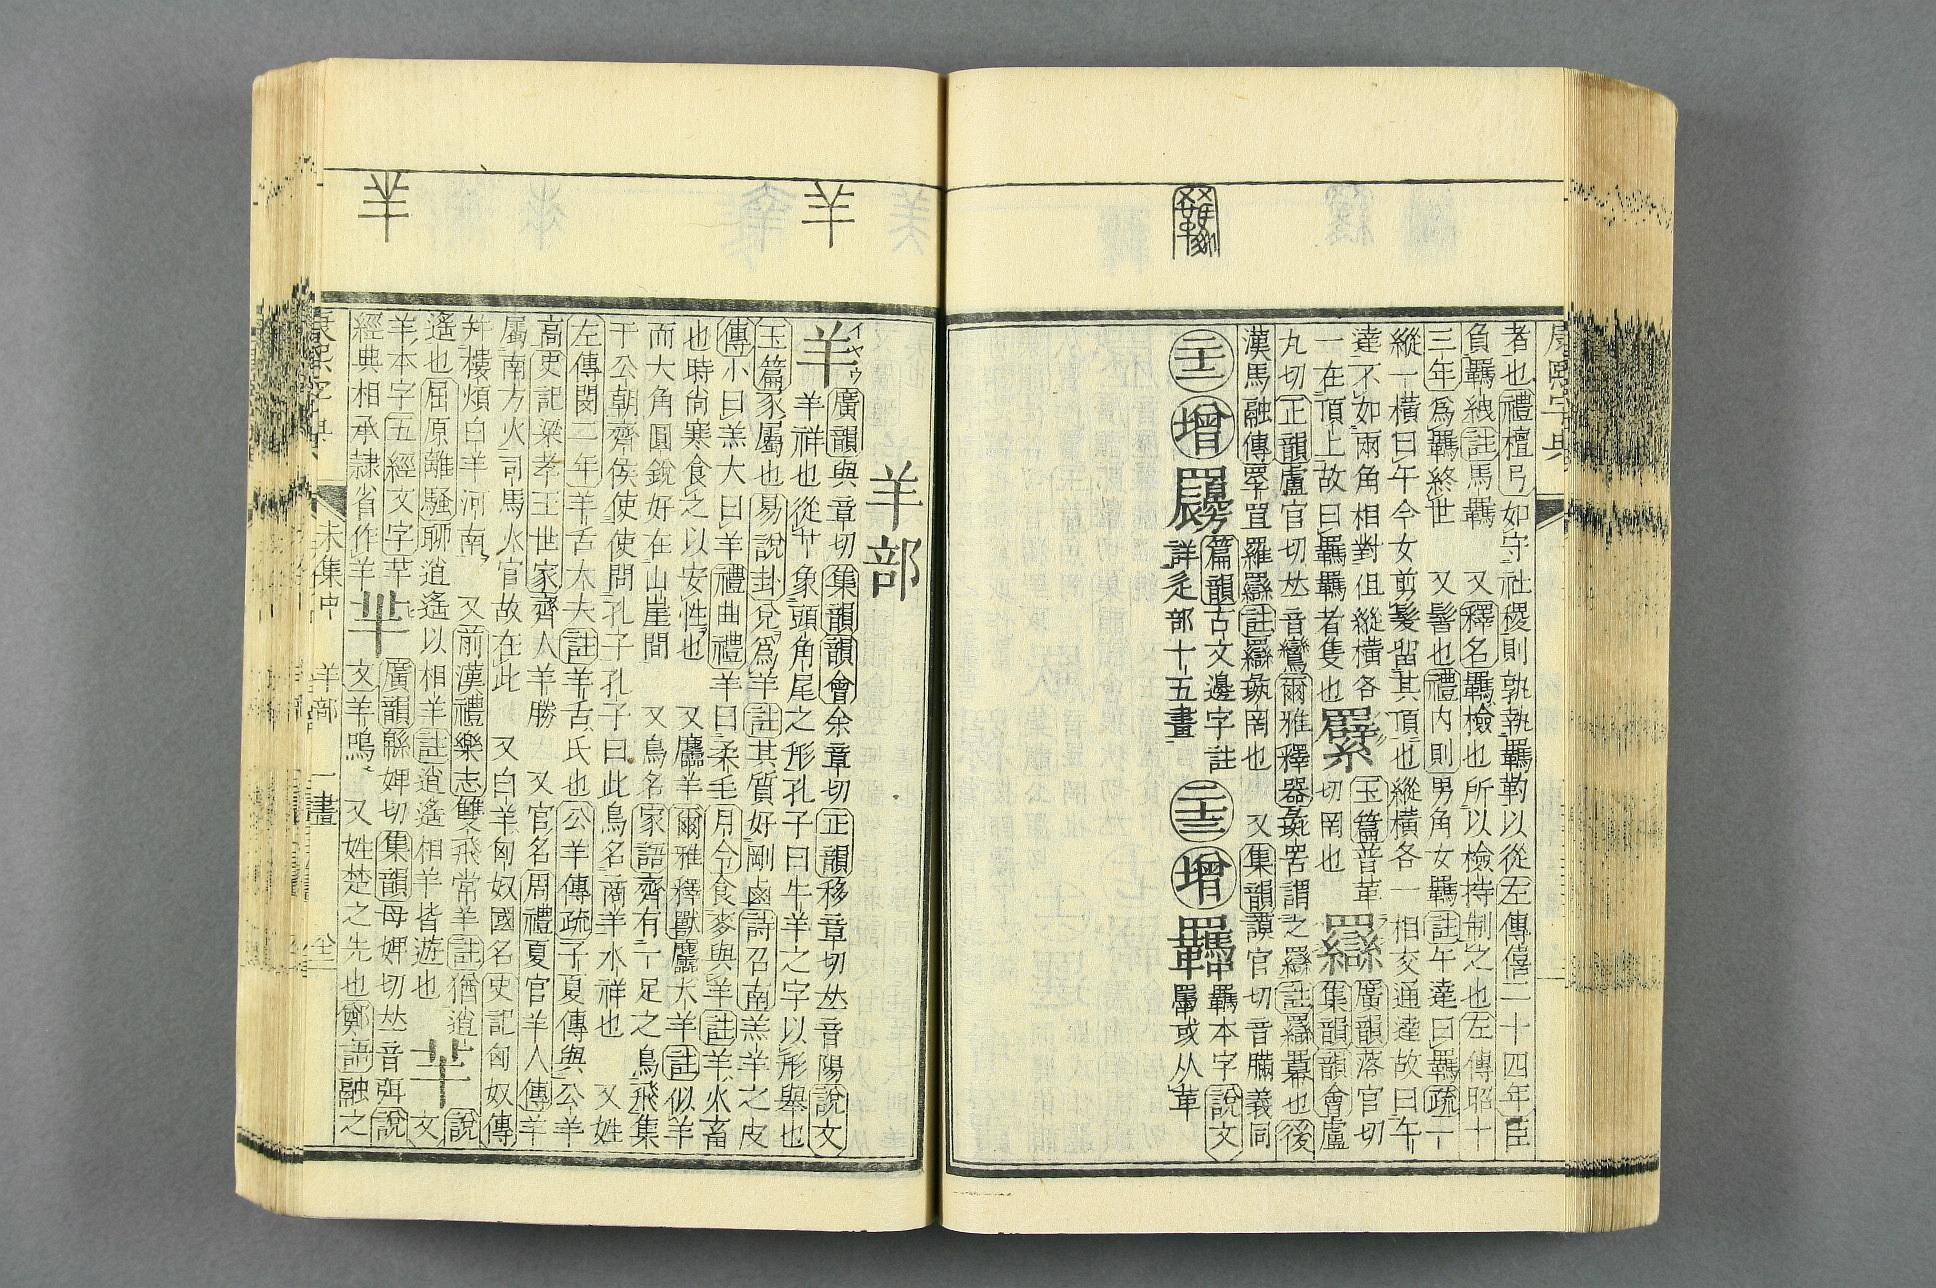 康熙字典
者也禮檀弓如守社稷則孰執羈靮以從左傳僖二十四年臣
負羈絏註馬羈 又釋名羈檢也所以檢持制之也左傳昭十
三年爲羈終世 又髻也禮内則男角女羈註午達曰羈疏一
縱一橫曰午今女剪髮留其頂也縱橫各一相交通達故曰午
達不如兩角相對但縱橫各
一在頂上故曰羈羈者隻也
玉篇普革
切罔也
廣韻落官切
集韻韻會盧
丸切正韻盧官切𠀤音鸞爾雅釋器彘罟謂之羉註羉幕也後
漢馬融傳罦罝羅羉註羉彘罔也 又集韻謨官切音瞞義同
二十一 增
篇韻古文邊字註
詳辵部十五畫
二十三 增
羈本字說文
馽或从革
羊部
羊 廣韻與章切集韻韻會余章切正韻移章切𠀤音陽說文
イヤウ
羊祥也從𦫳象頭角尾之形孔子曰牛羊之字以形舉也
玉篇豕屬也易說卦兌爲羊註其質好剛鹵詩召南羔羊之皮
傳小曰羔大曰羊禮曲禮羊曰柔毛月令食麥與羊註羊火畜
也時尚寒食之以安性也 又麢羊爾雅釋獸麢大羊註似羊
而大角圓銳好在山崖間 又鳥名家語齊有一足之鳥飛集
于公朝齊侯使使問孔子孔子曰此鳥名商羊水祥也 又姓
左傳閔二年羊舌大夫註羊舌氏也公羊傳疏子夏傳與公羊
高史記梁孝王世家齊人羊勝 又官名周禮夏官羊人傳羊
屬南方火司馬火官故在此 又白羊匈奴國名史記匈奴傳
幷樓煩白羊河南 又前漢禮樂志雙飛常羊註猶逍
遙也屈原離騷聊逍遙以相羊註逍遙相羊皆遊也 𦍌 說文
羊本字五經文字𦍌
經典相承隸省作羊
羋 廣韻緜婢切集韻母婢切𠀤音弭說
文羊鳴 又姓楚之先也鄭語融之
康熙字典 未集中 羊部 一畫